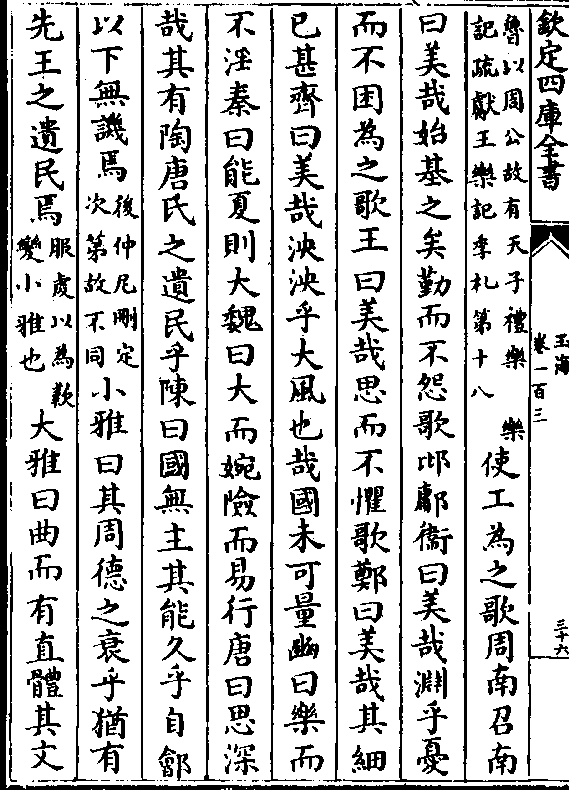 欽定四庫全書
玉海
卷一百三
三十六
魯以周公故有天子禮樂　樂
記疏獻王樂記季札第十八
使工為之歌周南召南
曰美哉始基之矣勤而不怨歌邶鄘衞曰美哉淵乎憂
而不困為之歌王曰美哉思而不懼歌鄭曰美哉其細
已甚齊曰美哉泱泱乎大風也哉國未可量豳曰樂而
不淫秦曰能夏則大魏曰大而婉險而易行唐曰思深
哉其有陶唐氏之遺民乎陳曰國無主其能久乎自鄶
以下無譏焉
後仲尼刪定
次第故不同
小雅曰其周德之衰乎猶有
先王之遺民焉
服䖍以為歎
變小雅也
大雅曰曲而有直體其文